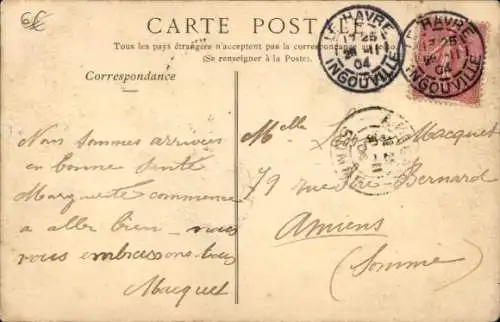 CARTE POSTALE
Tous les pays étrangers n'acceptent pas la correspondance
(Se renseigner à la Poste).
Correspondance
LE HAVRE
17 25
04
INGOUVILLE
LE HAVRE
17 25
04
INGOUVILLE
Nous sommes arrivées
en bonne santé
Marguerite commence
a aller bien nous
vous embrassons tous
Macquet
Melle Macquet
79 rue Bernard
Amiens
(Somme)